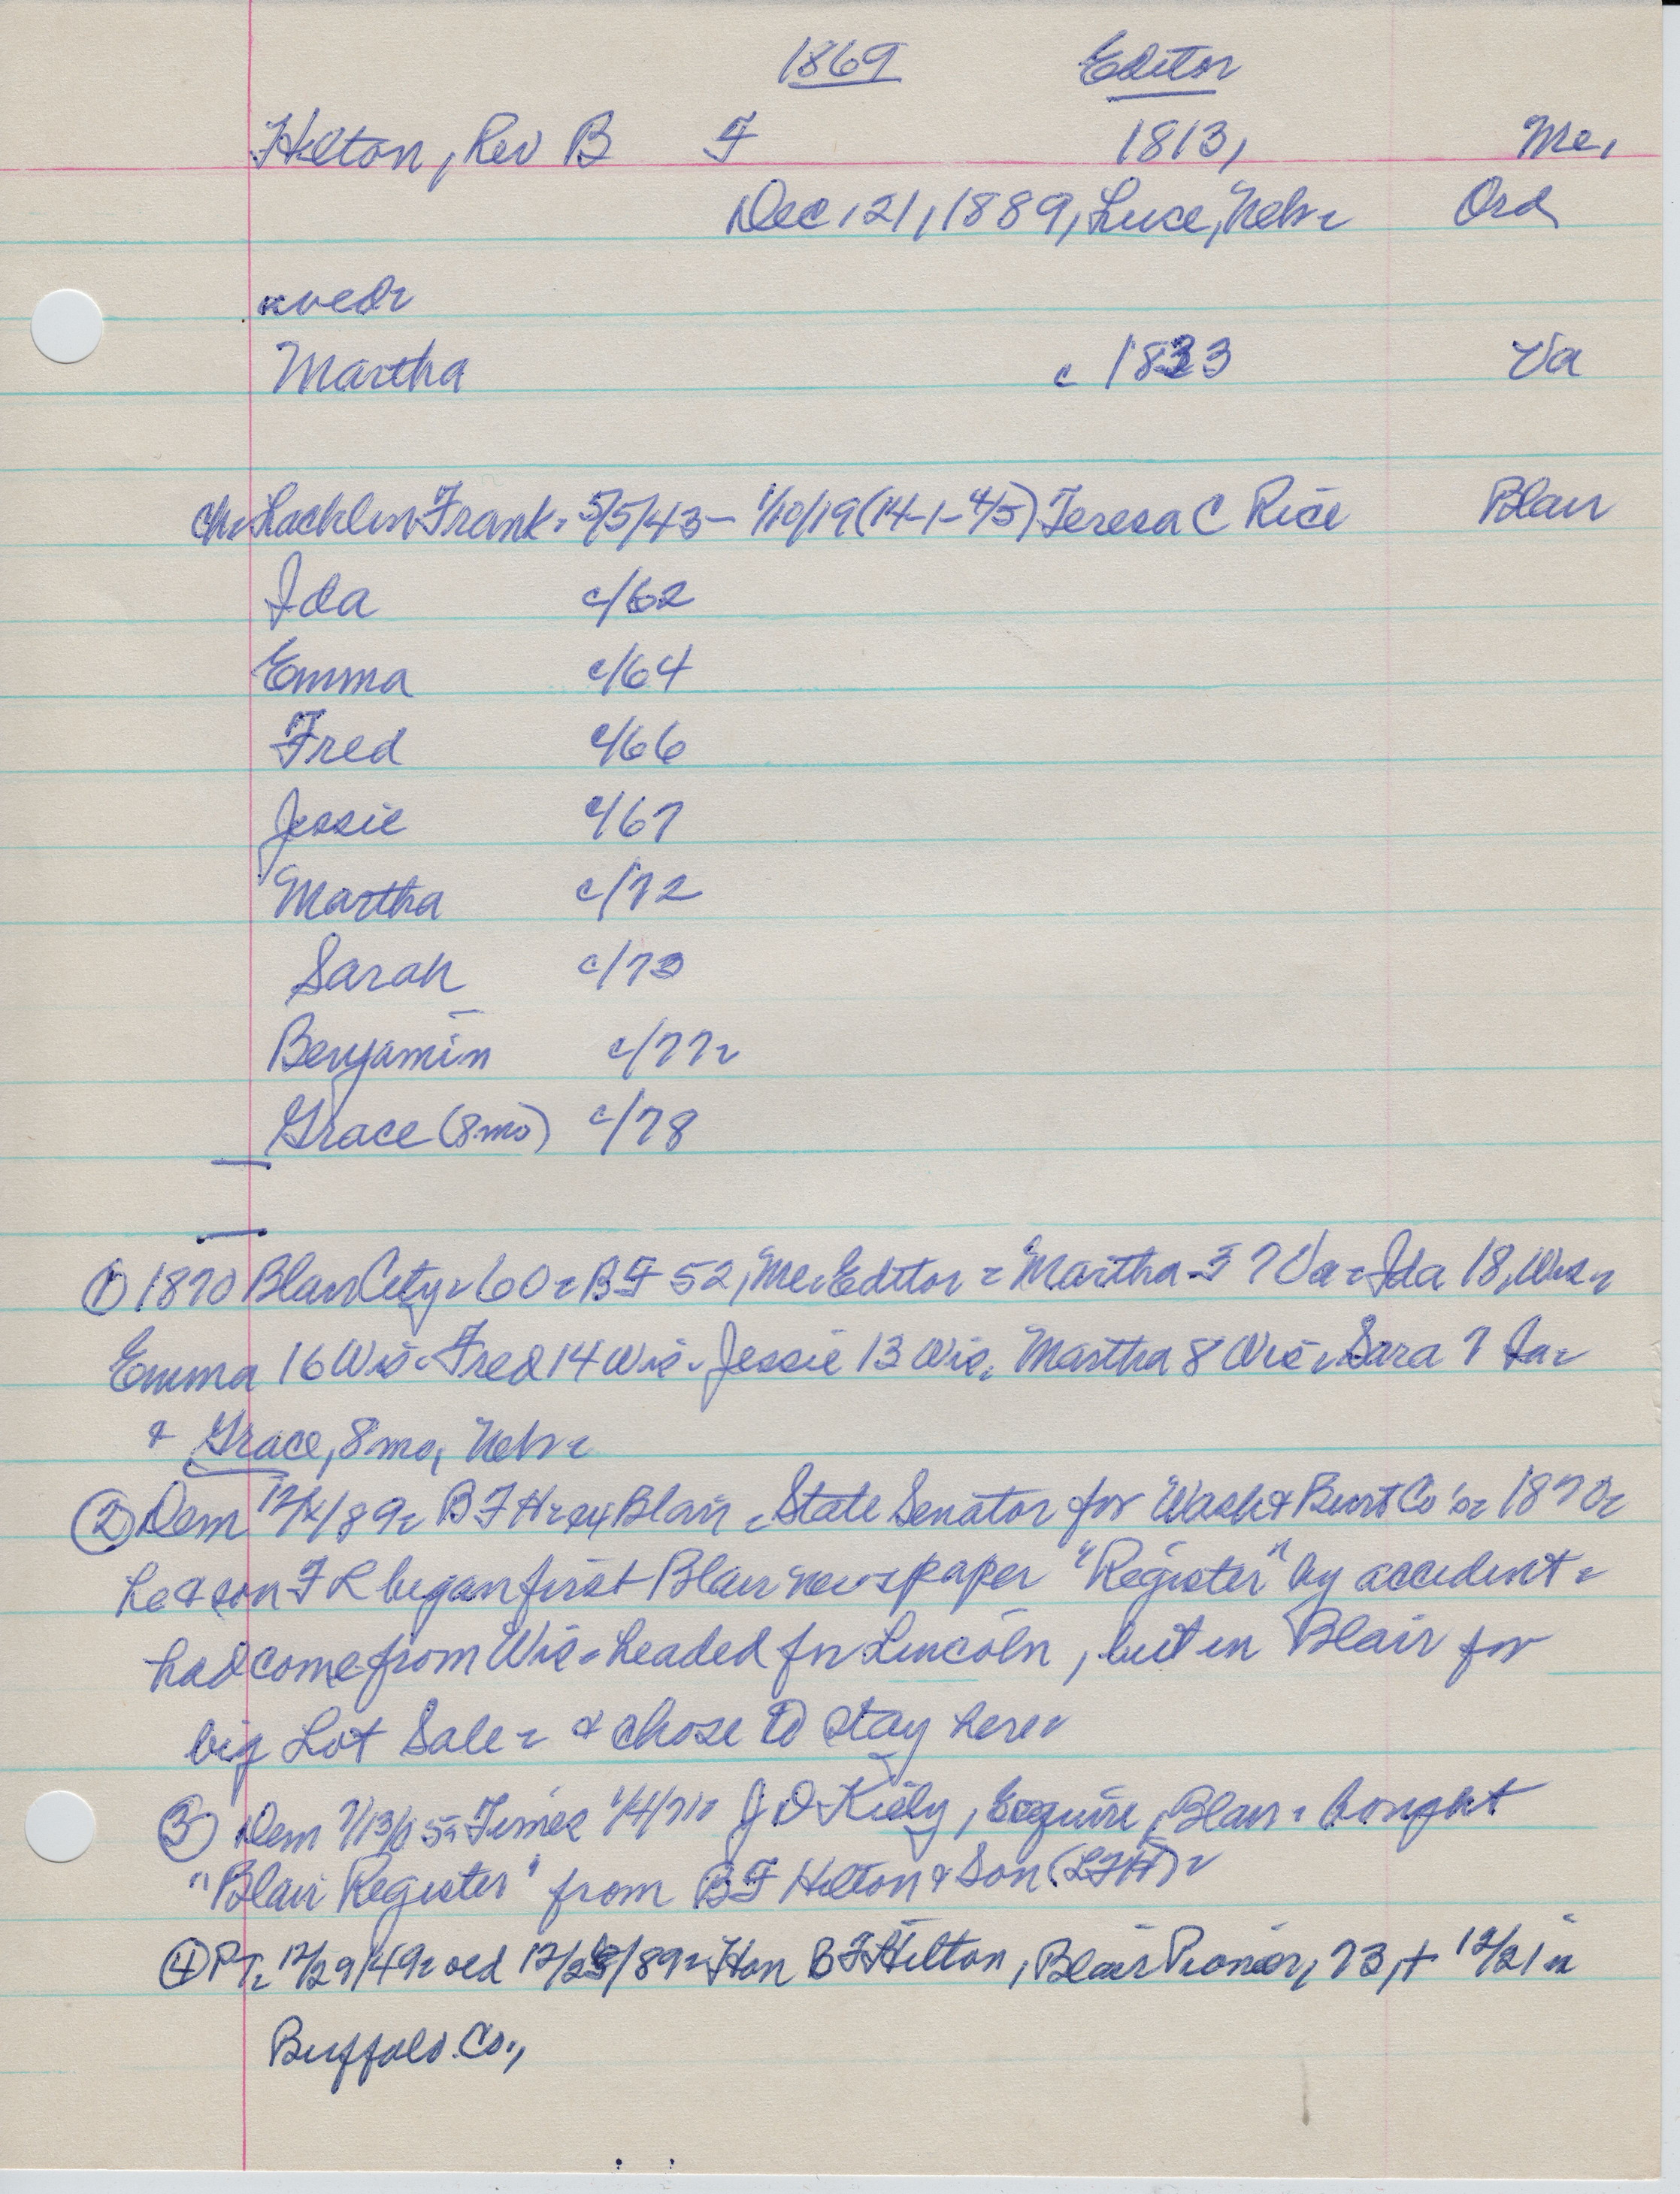 1869 Editor
Hilton, Rev B F 1813, Me,
Dec, 21, 1889, Luce, Nebr Ord
wed
Martha c 1833 Va
ch. Lacklen Frank. 5/5/43 - 1/10/19 (14-1-4/5) Teresa C Rice Blair
Ida c/62
Emma c/64
Fred c/66
Jessie c/67
Martha c/72
Sarah c/73
Benjamin c/77
Grace (8 mo) c/78
① 1870 Blair City 60 BF 52, Me. Editor Martha 37 Va Ida 18, Wis
Emma 16 Wis. Fred 14 Wis. Jessie 13 Wis. Martha 8 Wis Sara 7 Ia
+ Grace, 8 mo, Nebr
② Dem 89 B F H ex Blair State Senator for Wash & Burt Co 1870
he & son F L began first Blair newspaper "Register" by accident
had come from Wis headed for Lincoln, but in Blair for
big Lot Sale & chose to stay here
③ Dem 7/13/05 Times 1/4/71 J D Kiely, Esquire, Blair. bought
"Blair Register" from B F Hilton & Son (LFH)
④ PT. 12/29/49 old 89 Hon B F Hilton, Blair Pioneer, 73, + 12/21 in
Buffalo Co.,